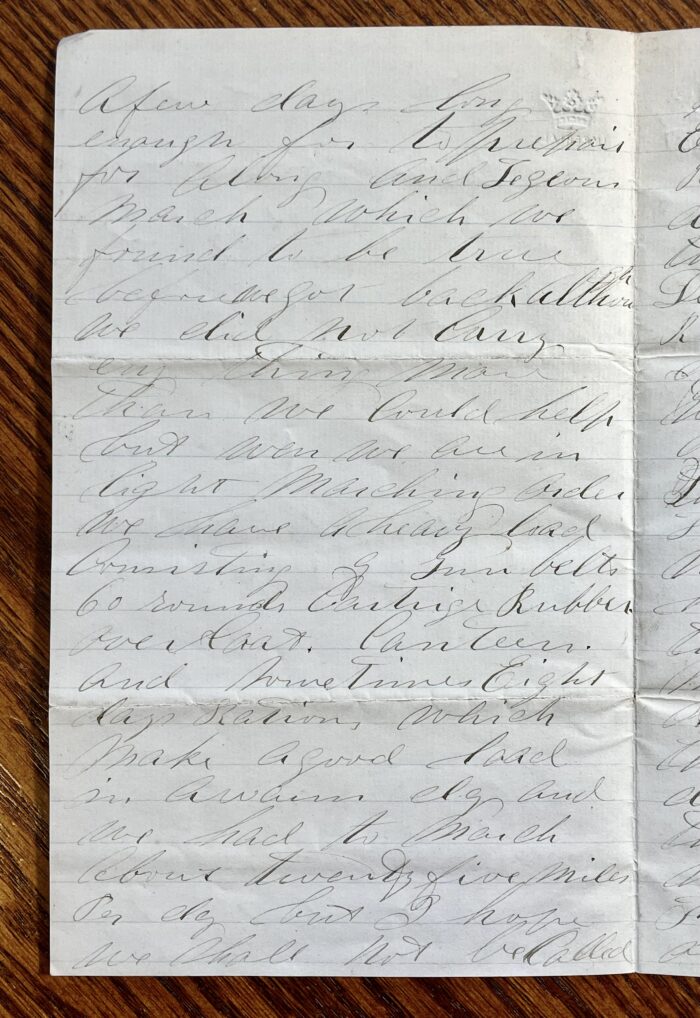 Afew days long
enough for to prepair
for Along and Tegeous
March which we
found to be true
beforewegot back allthou
we did not Carry
eny thing more
than we Could help
but wen we are in
light Marching order
we have Aheavy load
Consisting of Gun belts
60 rounds Cartrige Rubber
over Coat. Canteen.
and sometimes Eight
days Rations which
make agood load
in Awarm dy and
we had to March
About twenty five Miles
Per dy but I hope
we shall not beCalled